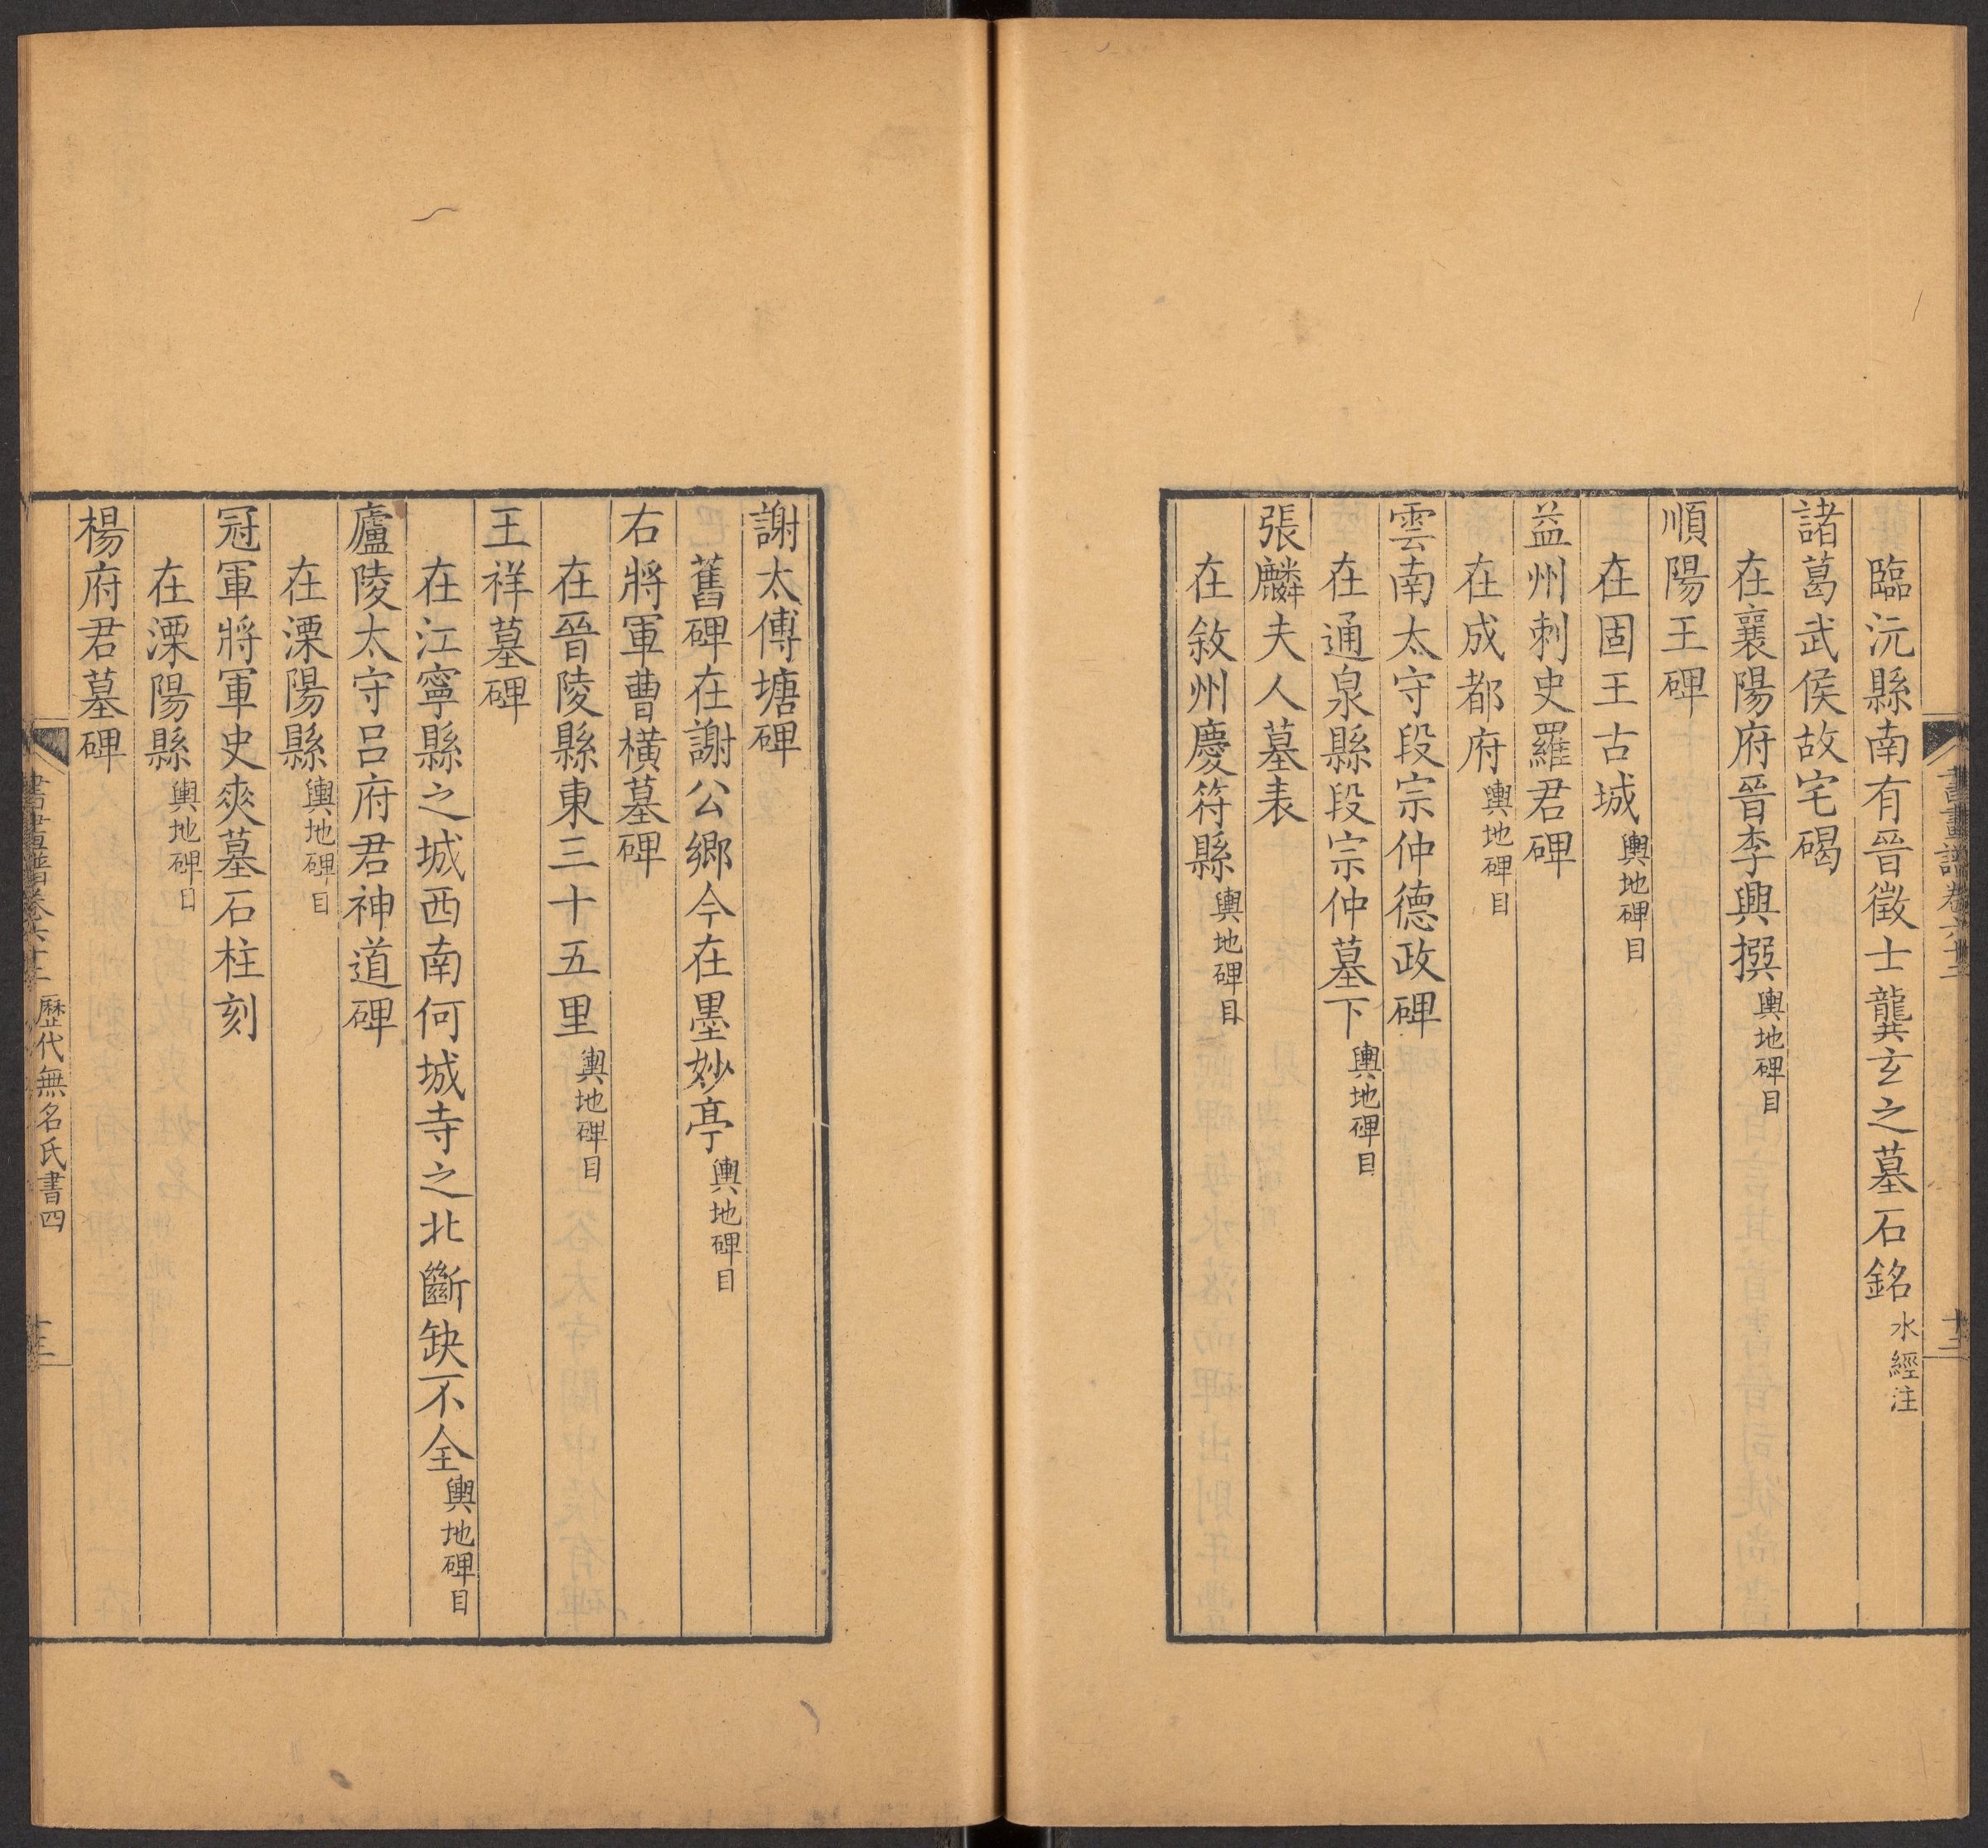 臨沅縣南有晉徵士龔玄之墓石銘水經注
諸葛武侯故宅碣
在襄陽府晉李興撰輿地碑目
順陽王碑
在固王古城輿地碑目
益州刺史羅君碑
在成都府輿地碑目
雲南太守段宗仲德政碑
在通泉縣段宗仲墓下輿地碑目
張麟夫人墓表
在敘州慶符縣輿地碑目
謝太傅塘碑
舊碑在謝公鄉今在墨妙亭輿地碑目
右將軍曹橫墓碑
在晉陵縣東三十五里輿地碑目
王祥墓碑
在江寧縣之城西南何城寺之北斷缺不全輿地碑目
廬陵太守呂府君神道碑
在溧陽縣輿地碑目
冠軍將軍史爽墓石柱刻
在溧陽縣輿地碑目
楊府君墓碑
書畫譜卷六十二 歷代無名氏書四 十三